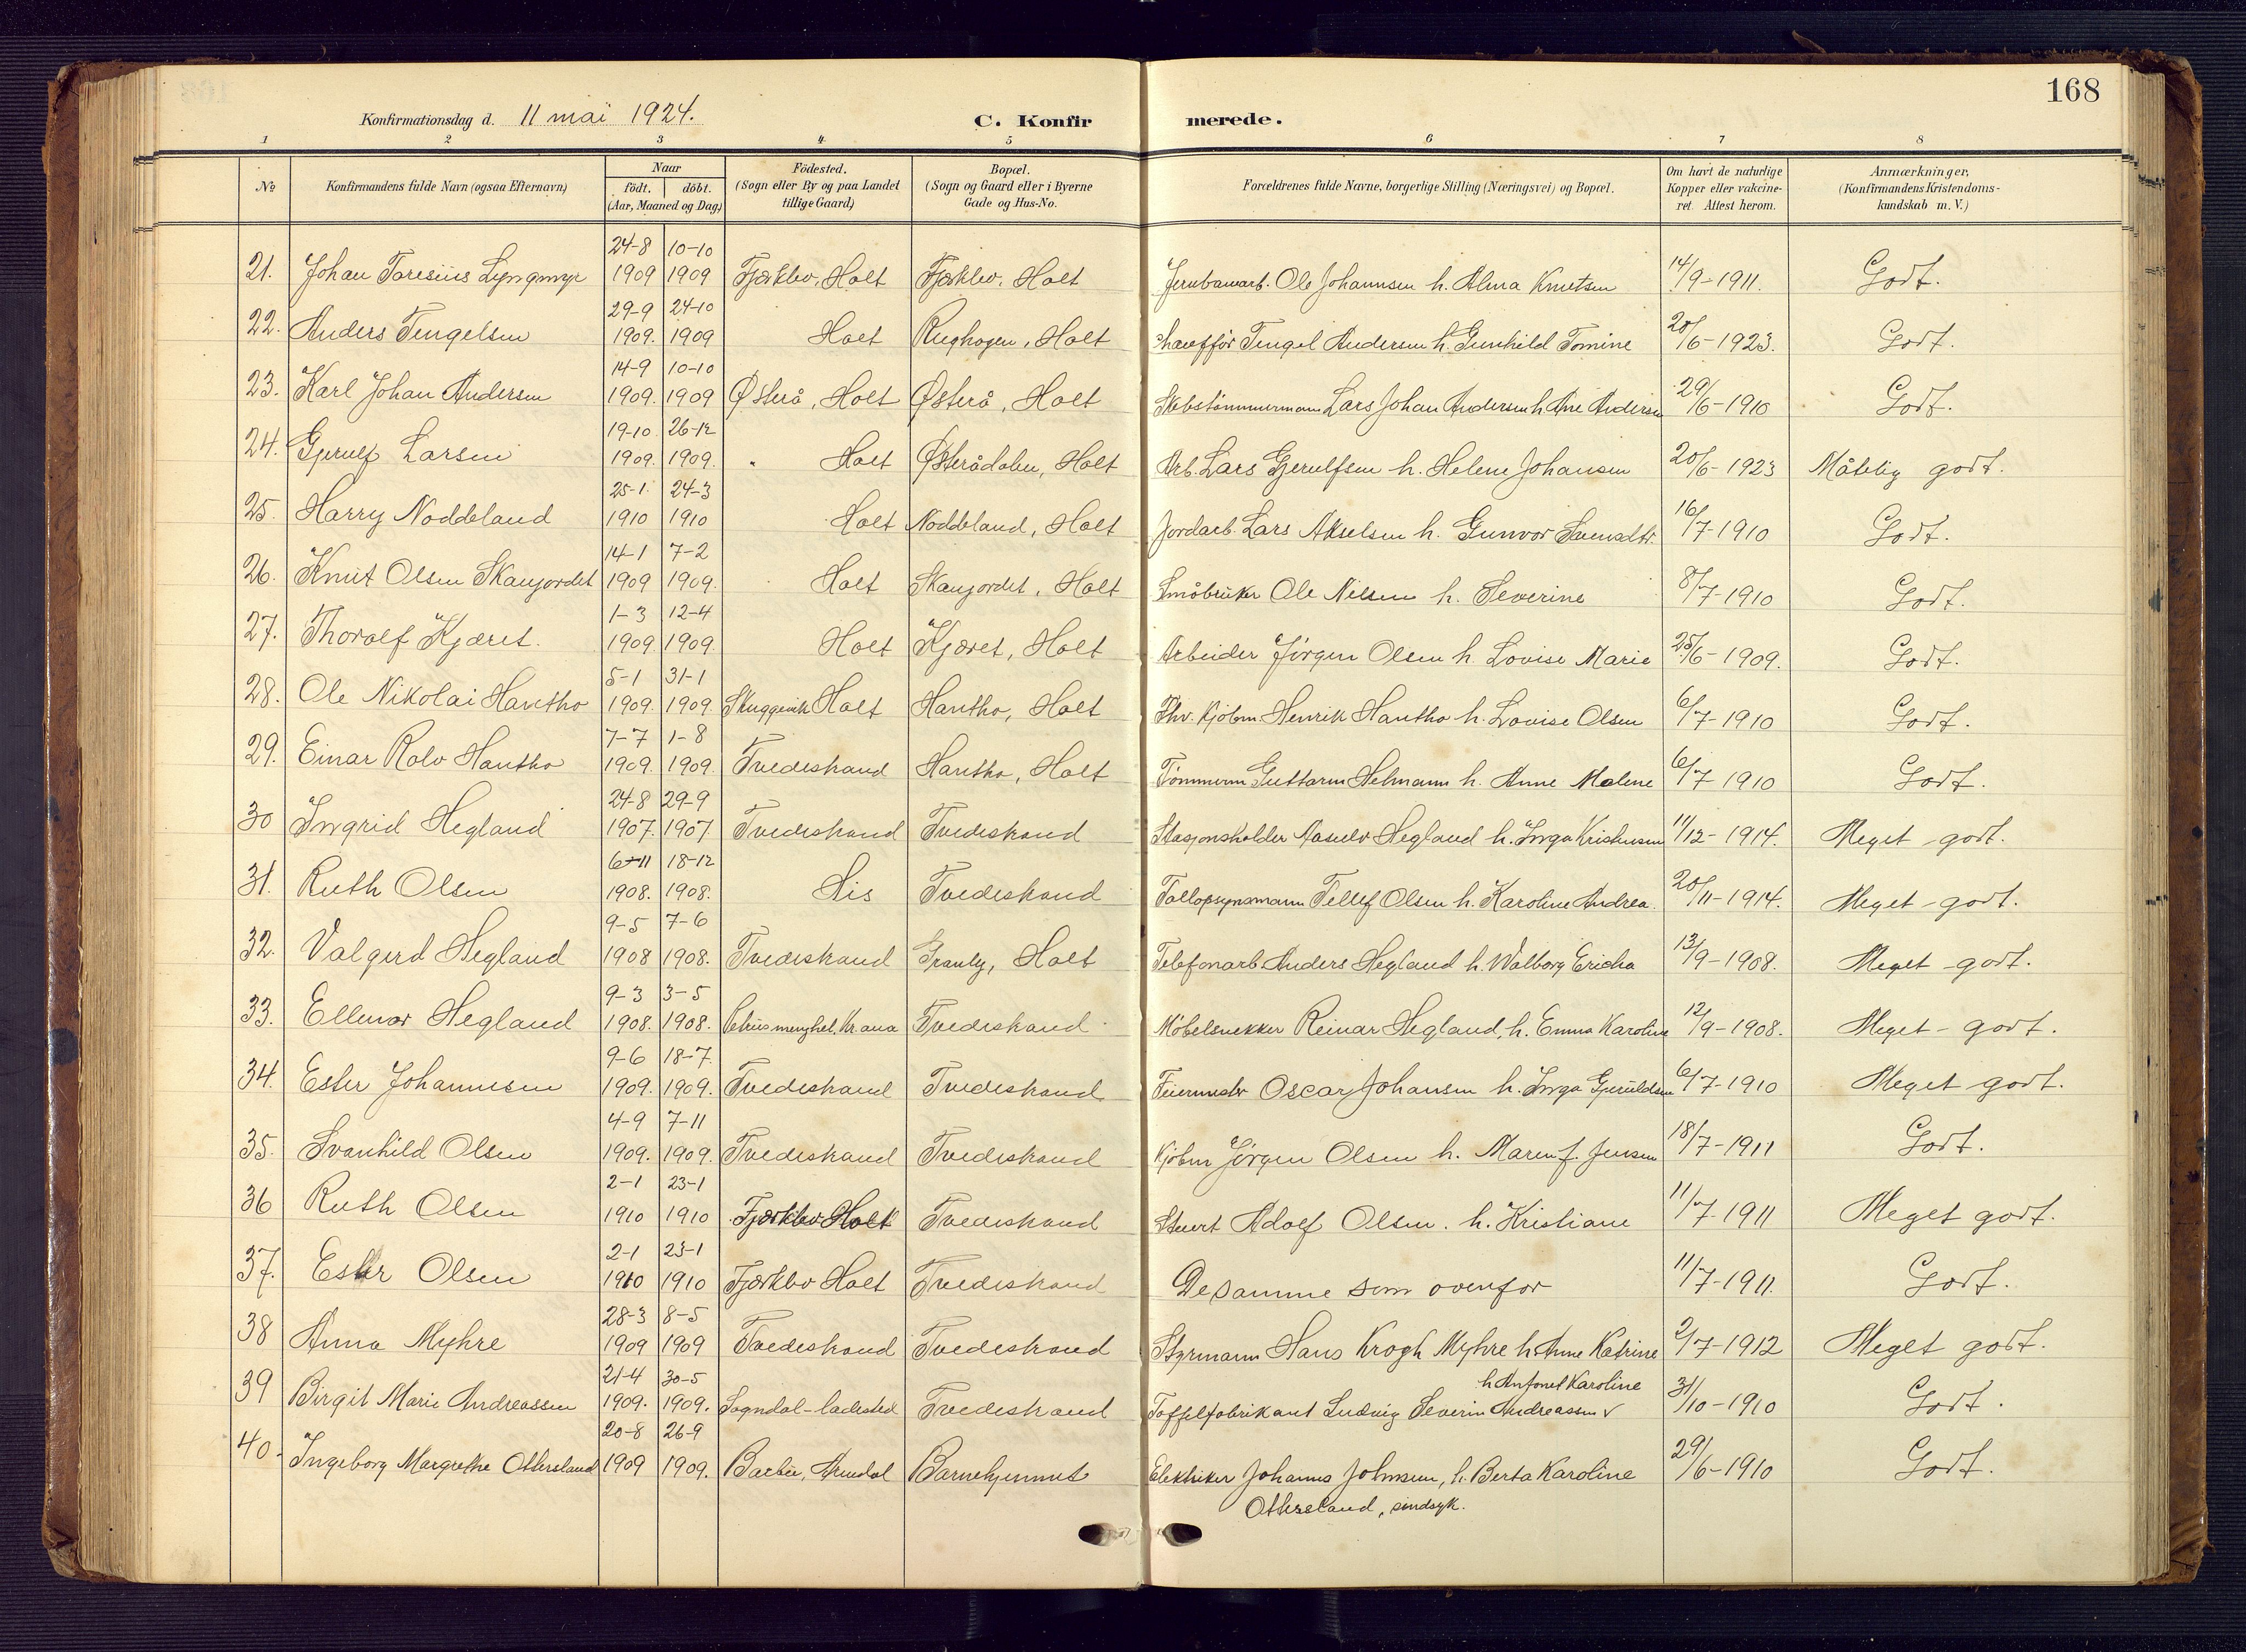 168
Konfirmationsdag d. 11 mai 1924.
C. Konfirmerede.
1 2 3 4 5 6 7 8
No
Konfirmandens fulde Navn (ogsaa Efternavn)
Naar
födt. döbt.
(Aar, Maaned og Dag)
Födested.
(Sogn eller By og paa Landet
tillige Gaard)
Bopæl.
(Sogn og Gaard eller i Byerne
Gade og Hus-No.
Forældrenes fulde Navne, borgerlige Stilling (Næringsvei) og Bopæl.
Om havt de naturlige
Kopper eller vakcine-
ret. Attest herom.
Anmærkninger,
(Konfirmandens Kristendoms-
kundskab m. V.)
24-8 10-10
21. Johan Taresius Lyngmyr 1909 1909 Fjærklev, Holt Fjærklev, Holt Jernbanearb. Ole Johannsen h. Alma Knutsen 14/9-1911. Godt.
29-9 24-10
22. Anders Tengelsen 1909. 1909 Holt Rughagen, Holt Chaufför Tengel Andersen h. Gunhild Tomine 20/6-1923. Godt.
14-9 10-10
23. Karl Johan Andersen 1909. 1909 Østerå, Holt Østerå, Holt Skibstömmermann Lars Johan Andersen h. Ane Andersen 29/6-1910 Godt.
19-10 26-12
24. Gjerulf Larsen 1909. 1909. Holt Østerådalen, Holt Arb. Lars Gjerulfsen h. Helene Johansen 20/6-1923 Måtelig godt.
25-1. 24-3
25. Harry Noddeland 1910 1910 Holt Noddeland, Holt Jordarb. Lars Akselsen h. Gunvor Svensdtr. 16/7-1910 Godt.
14-1 7-2
26. Knut Olsen Skaujordet 1909 1909. Holt Skaujordet, Holt Småbruker Ole Nilsen h. Severine 8/7-1910 Godt.
1-3 12-4
27. Thoralf Kjæret. 1909. 1909. Holt Kjæret, Holt Arbeider Jörgen Olsen h. Lovise Marie 25/6-1909. Godt.
5-1 31-1
28. Ole Nikolai Hantho 1909. 1909. Skuggevik Holt Hantho, Holt Fhv. Kjöbm. Henrik Hantho h. Lovise Olsen 6/7-1910 Godt.
7-7 1-8
29. Einar Rolv Hantho 1909. 1909. Tvedestrand Hantho, Holt Tömmerm Guttorm Helmann h. Anne Malene 6/7 1910 Godt.
24-8 29-9
30 Ingrid Hegland 1907. 1907 Tvedestrand Tvedestrand Stasjonsholder Aasulv Hegland h. Inga Kristensen 11/12-1914. Meget godt.
6-11 18-12
31. Ruth Olsen 1908. 1908. His Tvedestrand Tollopsynsmann Tellef Olsen h. Karoline Andrea. 20/11-1914. Meget godt.
9-5 7-6
32. Valgerd Hegland 1908 1908. Tvedestrand Granly, Holt Telefonarb. Anders Hegland h. Walborg Ericka 13/9-1908. Meget godt.
9-3 3-5
33. Ellenor Hegland 1908. 1908. Petrus menghet. Kr.ana Tvedestrand. Möbelsnekker Reinar Hegland, h. Emma Karoline 12/9-1908. Meget godt.
9-6 18-7.
34. Ester Johannesen 1909. 1909. Tvedestrand Tvedestrand Feiermester Oscar Johansen h. Inga Gjeruldsen 6/7-1910 Meget godt.
4-9 7-11
35. Svanhild Olsen 1909. 1909. Tvedestrand Tvedestrand Kjöbm Jörgen Olsen h. Maren f. Jensen 18/7-1911 Godt.
2-1 23-1
36 Ruth Olsen 1910 1910 Fjærklev Holt Tvedestrand Stuert Adolf Olsen. h. Kristiane 11/7-1911 Meget godt.
2-1 23-1
37. Ester Olsen 1910 1910 Fjærklev Holt Tvedestrand De samme som ovenfor 11/7-1911. Godt.
28-3 8-5
38 Anna Myhre 1909 1909 Tvedestrand Tvedestrand Styrmann Hans Krogh Myhre h. Anne Katrine 2/7-1912 Meget godt.
21-4 30-5 h. Antonet Karoline
39 Birgit Marie Andreassen 1909. 1909. Sogndal-ladested Tvedestrand Töffelfabrikant Ludvig Severin Andreassen v 31/10-1910 Godt.
20-8 26-9
40. Ingeborg Margrethe Ottersland 1909 1909. Barbu, Arendal Barnehjemmet Elektriker Johannes Johnsen, h. Berta Karoline 29/6-1910 Godt.
Ottersland, sindsyk.